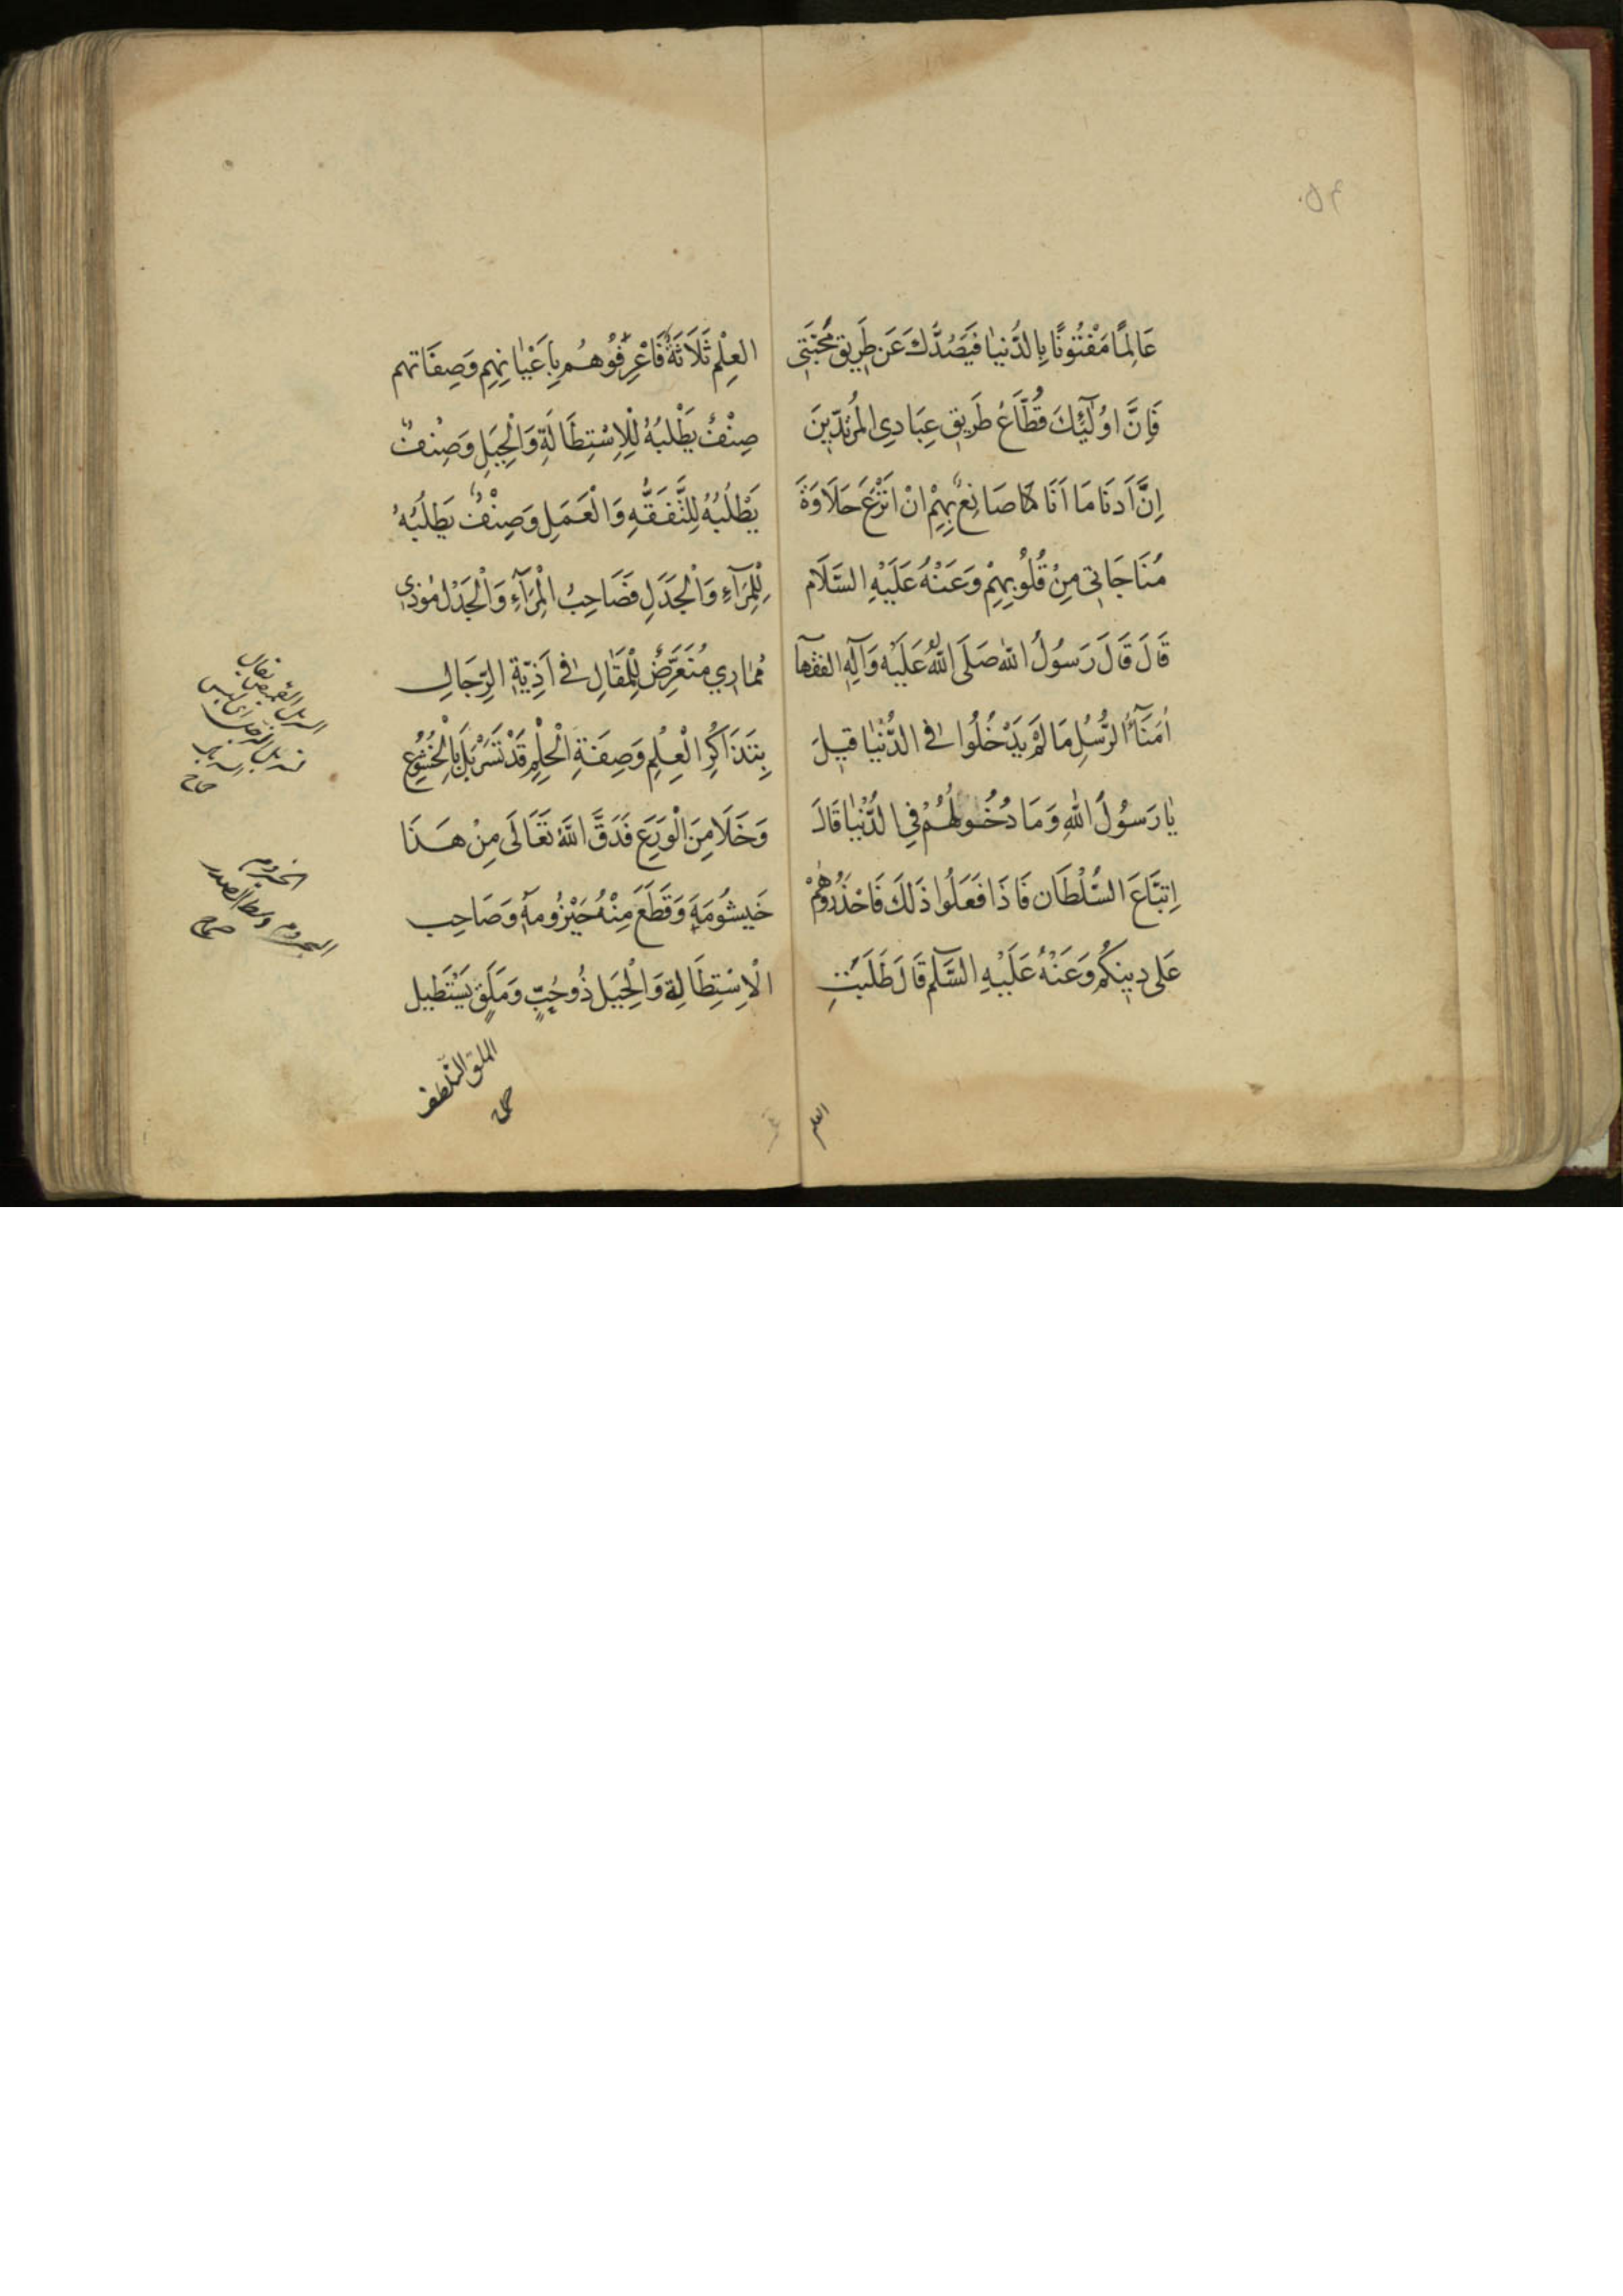 عَالِمًا مَفْتُونًا بِالدُّنيٰا فَيَصُدَّكَ عَن طَرِيقِ مَحَبَّتِي
فَإِنَّ اوُلَٰٓئِكَ قُطَّاعُ طَرِيقِ عِبَادِي المُرِيدِينَ
اِنَّ اَدنَا مَا اَنَا صَانِعٌ بِهِمْ انْ اَنْزِعَ حَلَاوَةَ
مُنَاجَاتِي مِنْ قُلُوبِهِمْ وَعَنْهُ عَلَيْهِ السَّلَام
قَالَ قَالَ رَسُولُ اللّٰه صَلَى اللّٰهُ عَلَيْه وَآلِهِ الفقهآ
اُمَنَآءُ الرُّسُلِ مَا لَمْ يَدْخُلُوا فِى الدُّنْيٰا قيلَ
يٰا رَسُولَ اللّٰهِ وَمَا دُخُولُهُمْ فِي الدُّنْيٰا قَالَ
اِتبَّاعَ السُّلْطَان فَاذَا فَعَلُوا ذَلكَ فَاحْذَرُوهُمْ
عَلى دِينِكُمْ وَعَنْهُ عَلَيْهِ السَّلٓم قَالَ طَلَبَةُ
العلم
العِلْمِ ثَلَاثَةٌ فَاعْرِفُوْهُمْ بِاَعْيٰانِهِمِ وَصِفَاتهم
صِنْفٌ يَطْلبُهُ لِلْاِسْتِطَالَةِ وَالْحِيَلِ وَصِنْفٌ
يَطْلُبُهُ لِلتَّفَقُّهِ وَالْعَمَلِ وَصِنْفٌ يَطلُبُهُ
لِلْمِرَآءِ وَالْجَدَلِ فَصَاحِبُ الْمِرَآءِ وَالْجَدَل مُوذي
مُمٰارِي مُتَعَرِّضٌ لِلْمَقَالِ فِى اَذِيّةِ الرِّجَالِ
بِتَذَاكُرِ الْعِلْمِ وَصِفَةِ الْحِلْمِ قَدْ تَسَرْبَلَ بِالْخُشُوعِ
وَخَلَا مِنَ الْوَرَعِ فَدَقَّ اللّٰهُ تَعَالَى مِنْ هَذَا
خَيشُومَهُ وَقَطَعَ مِنْهُ حَيْزُومهُ وَصَاحِب
الْاِسْتِطَالَةِ وَالْحِيَل ذُو خُبٍّ وَمَلَقٍ يَسْتَطيل
الملق التلطف
السربال القميص يقال
الحيزوم وسط الصدر